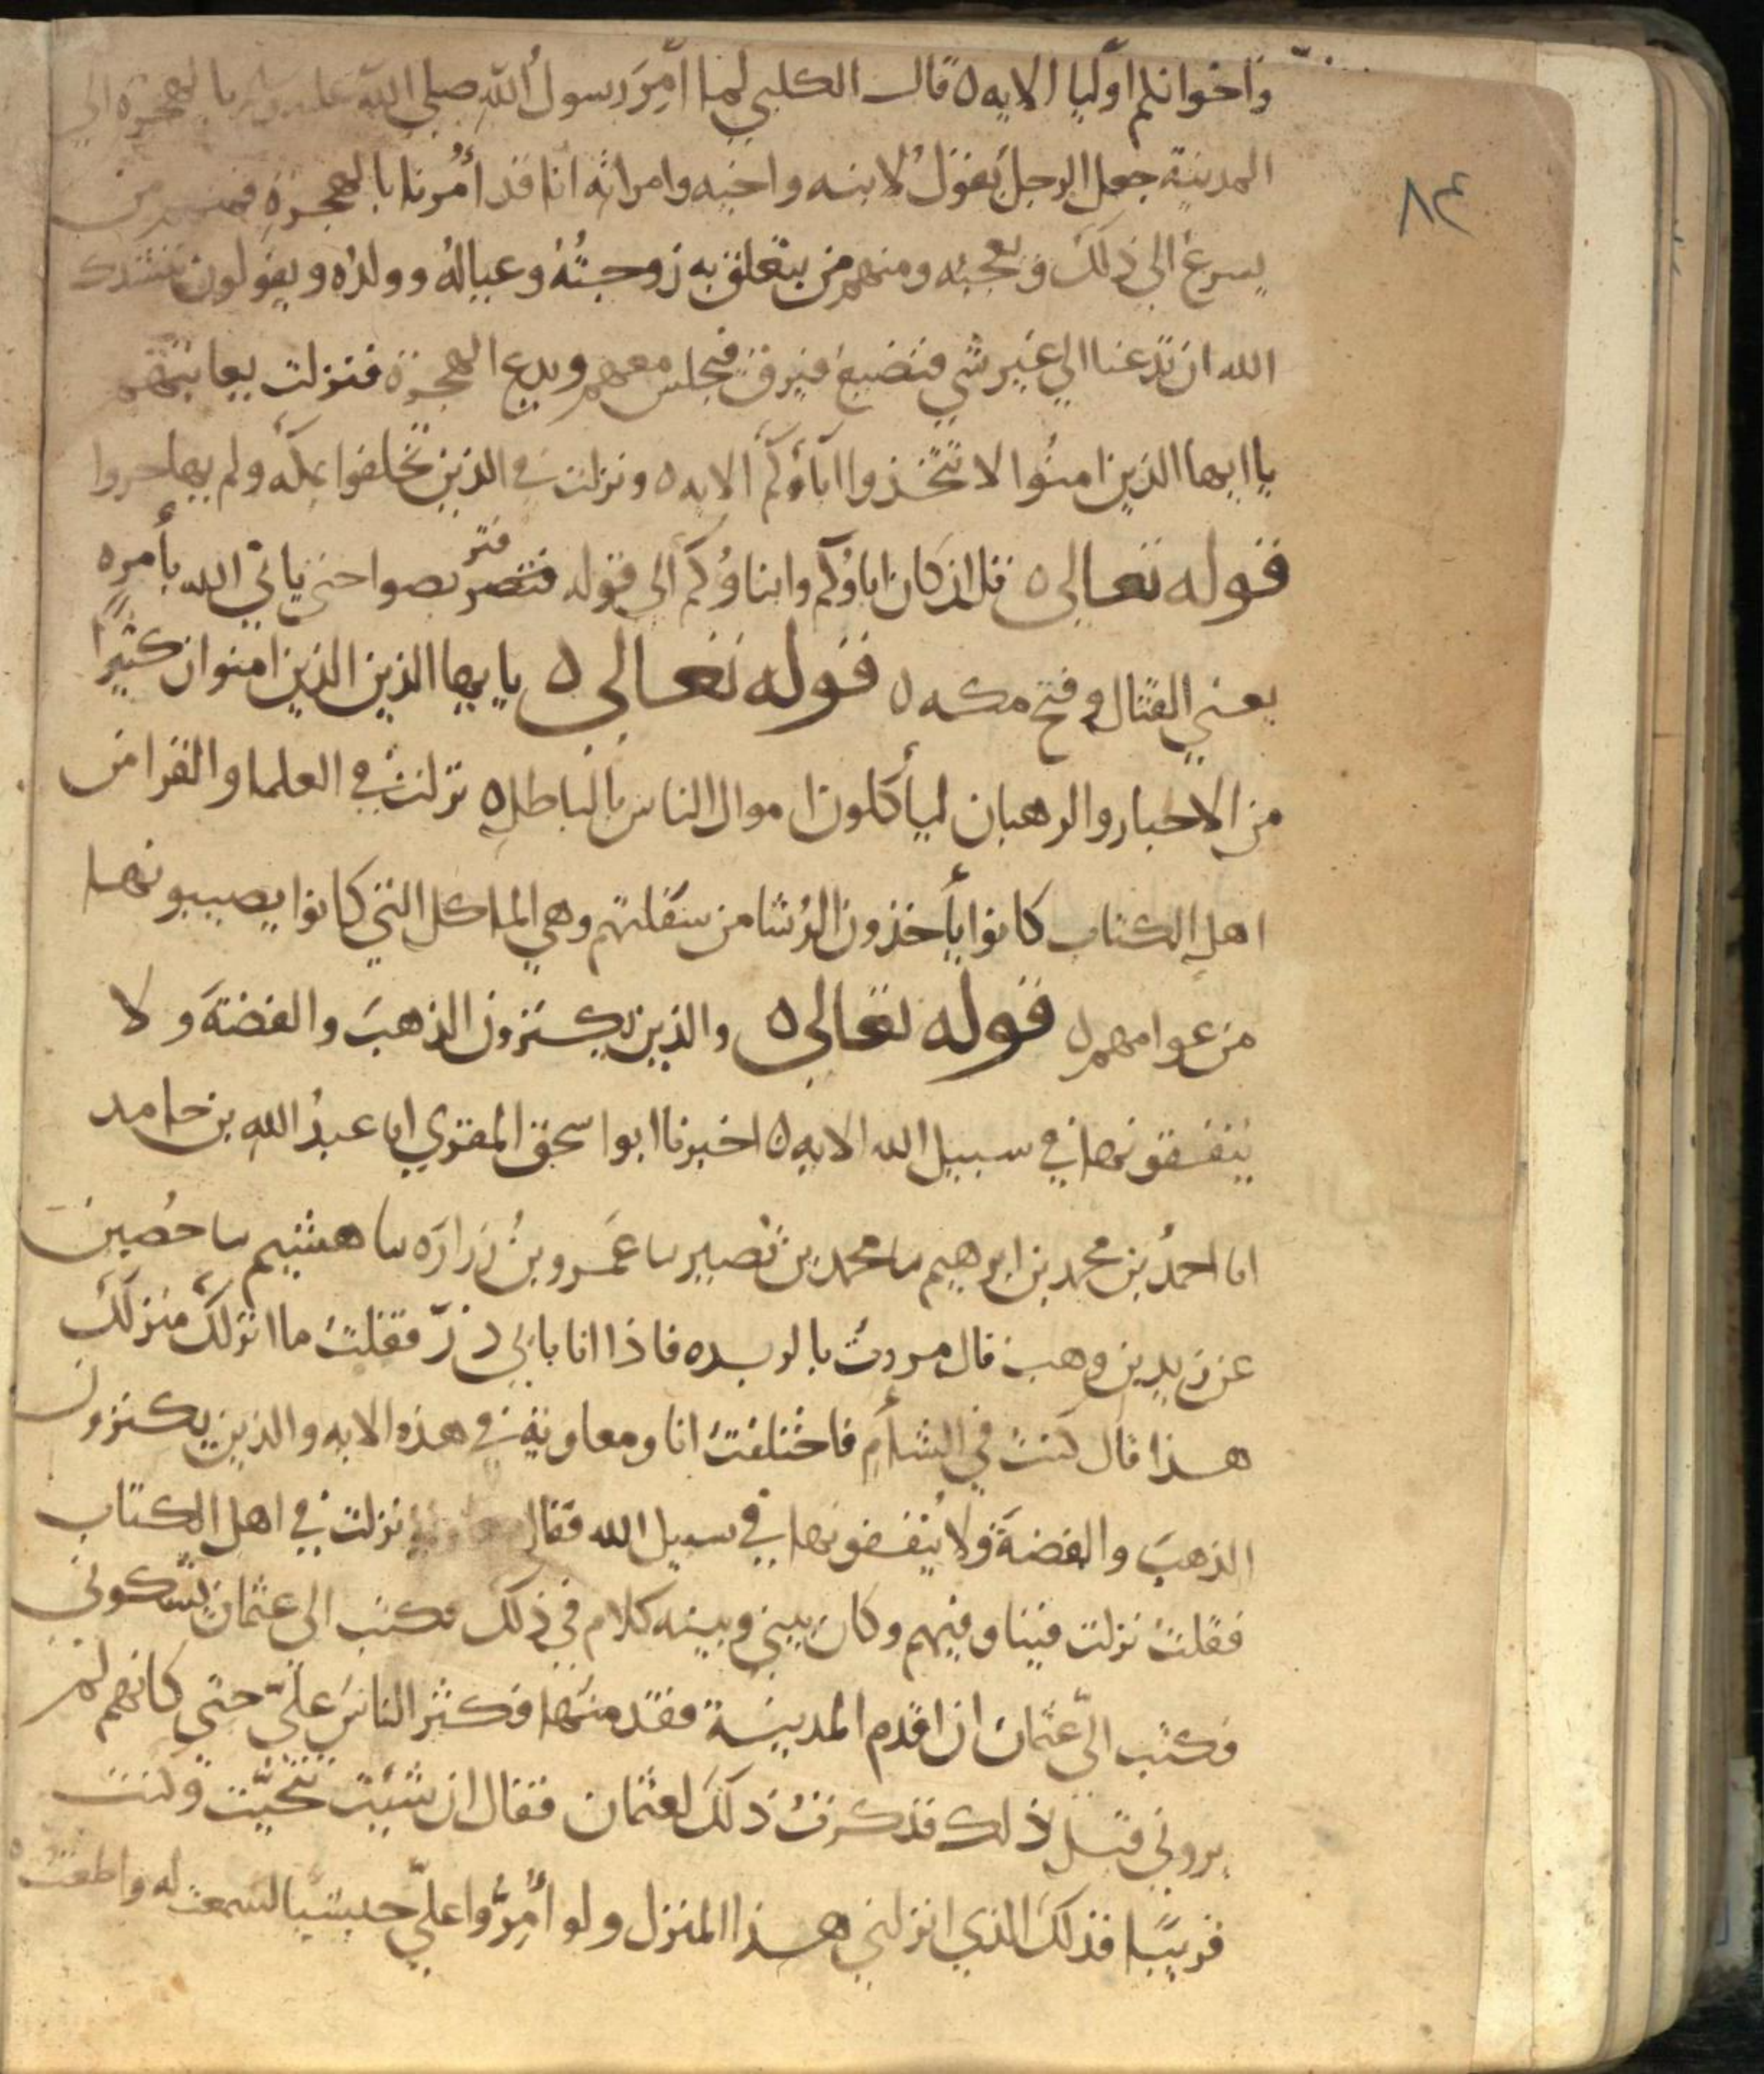 واخوانكم اوليا الايه ه قال الكلبي لما اُمِرَ رسولُ الله صلى الله عليه وسلم بالهجرة الي
٨٤
المدينة جعل الرجل يقولُ لابنه واخيه وامراته انا قد اُمُرنا بالهجرةِ فمنهم من
يسرعُ الي ذلك ويعجبه ومنهم من يتعلق به زوجتُهُ وعيالهُ وولدُه ويقولون ننشدك
الله ان تدعنا الي غير شي فنضيع فيرق فيجلس معهم ويدع الهجرة فنزلت يعاتبهم
يا ايها الذين امنُوا لا تتخذوا اباؤكم الايه ه ونزلت في الذين تخلفوا بمكة ولم يهاحروا
قوله تعالى ه قل ان كان اباؤكم وابناؤكم الي قوله فتر فتصربصوا حتى ياتي الله بأمره
يعني القتال وفتح مكه ه قوله تعالى ه يا يها الذين الذين امنوا ان كثيرًا
من الاحبار والرهبان ليأكلون اموال الناس بالباطلِ ه نزلت في العلما والقرا من
اهل الكتاب كانوا يأخذون الرُشا من سفلتهم وهي الماكل التي كانوا يصيبونها
من عوامهم ه قوله تعالى ه والذين يكنزون الذهبَ والفضةَ ولا
ينفقونها في سبيل الله الايه ه اخبرنا ابو اسحق المقري ابا عبدُ الله بن حامد
انا احمدُ بن محمد بن ابرهيم نا محمد بن نُصير نا عَمرو بنُ زرارَه نا هشيم نا حُصين
عن زيد بن وهب قال مررتُ بالربده فاذا انا بابي ذرّ فقلت ما انزلكَ منزلكَ
هذا قال كنت في الشأم فاختلفتُ انا ومعاوية في هذه الايه والذين يكنزون
الذهبَ والفضةَ ولا يُنفقونها في سبيل الله فقال معاوية نزلت في اهل الكتاب
فقلت نزلت فينا وفيهم وكان بيني وبينه كلام في ذلك فكتب الي عثمان يشكوني
فكتب اليّ عثمان ان اقدم المدينة فقدمتها فكثر الناسُ عليّ حتي كانهم لم
يروني قبل ذلك فذكرت ذلكَ لعثمان فقال ان شيت تنحّيت وكنت
قريبًا فذلكَ الذي انزلني هذا المنزل ولو اُمِرّوا عليّ حبشيا لسمعت له واطعتُ ه